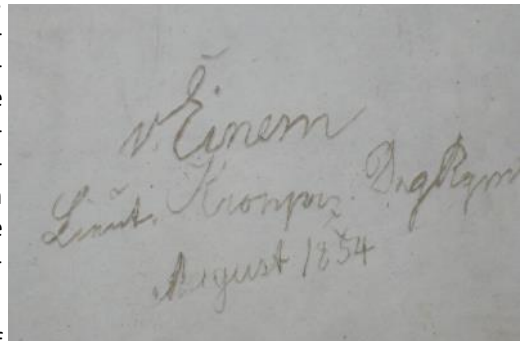 v. Einem
Lieut. Kronprz. Drg Rgm
August 1854